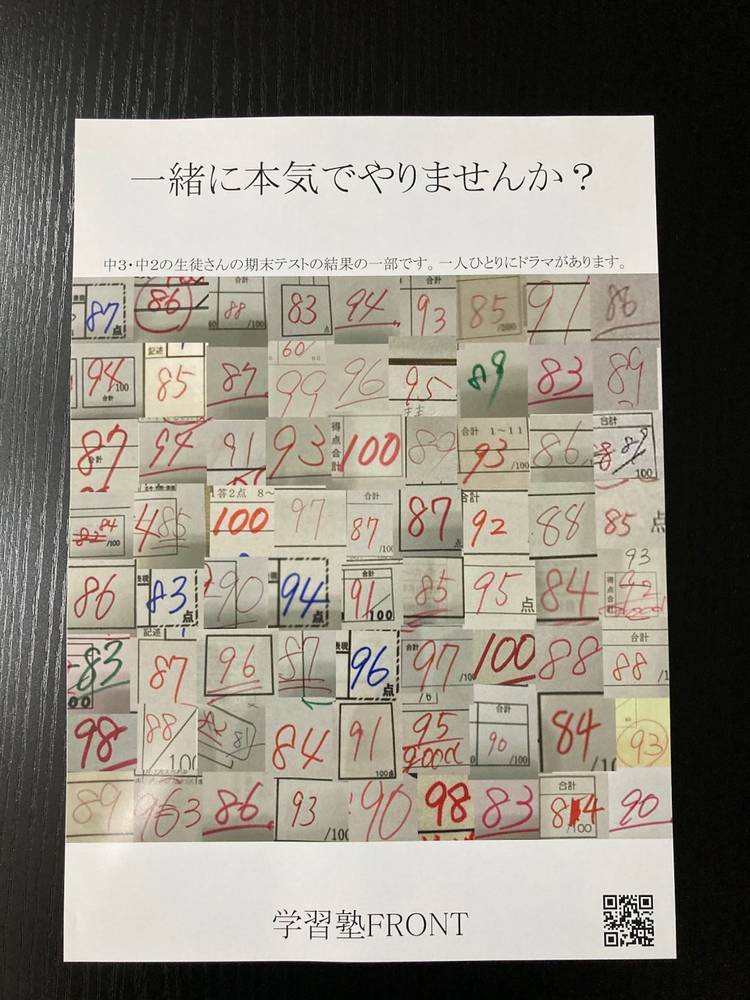 一緒に本気でやりませんか？
中３・中２の生徒さんの期末テストの結果の一部です。一人ひとりにドラマがあります。
87点 86 88/100 83点 94 93 85/100 91 86
94/100合計 記述85 87 60/99 96 95 89 83 89
87合計 94 91 93 得点合計100 89 合計 1～11 93/100 86 合計 89 100
84/100 85 1答2点 8～100 97 合計87/100 87 合計92 88 85点
86 表現83点 90 表現94点 合計91/100 85 95点 84 93得点合計
83 記述87 96 87 表現96点 合計97/100 100 88 合計88/1
98 88/100 81 84 91 100点 95 good 合計90/100 84/10 93
89 93 86 93/100 90 98 83 合計84/100 90
学習塾FRONT